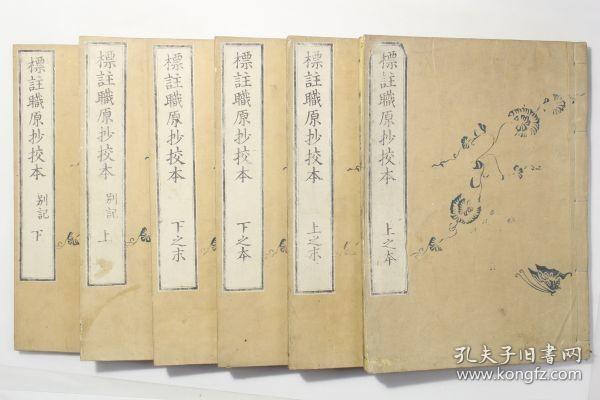 標註職原抄挍本 上之本
標註職原抄挍本 上之末
標註職原抄挍本 下之本
標註職原抄挍本 下之末
標註職原抄挍本 別記 上
標註職原抄挍本 別記 下
孔夫子旧书网
www.kongfz.com